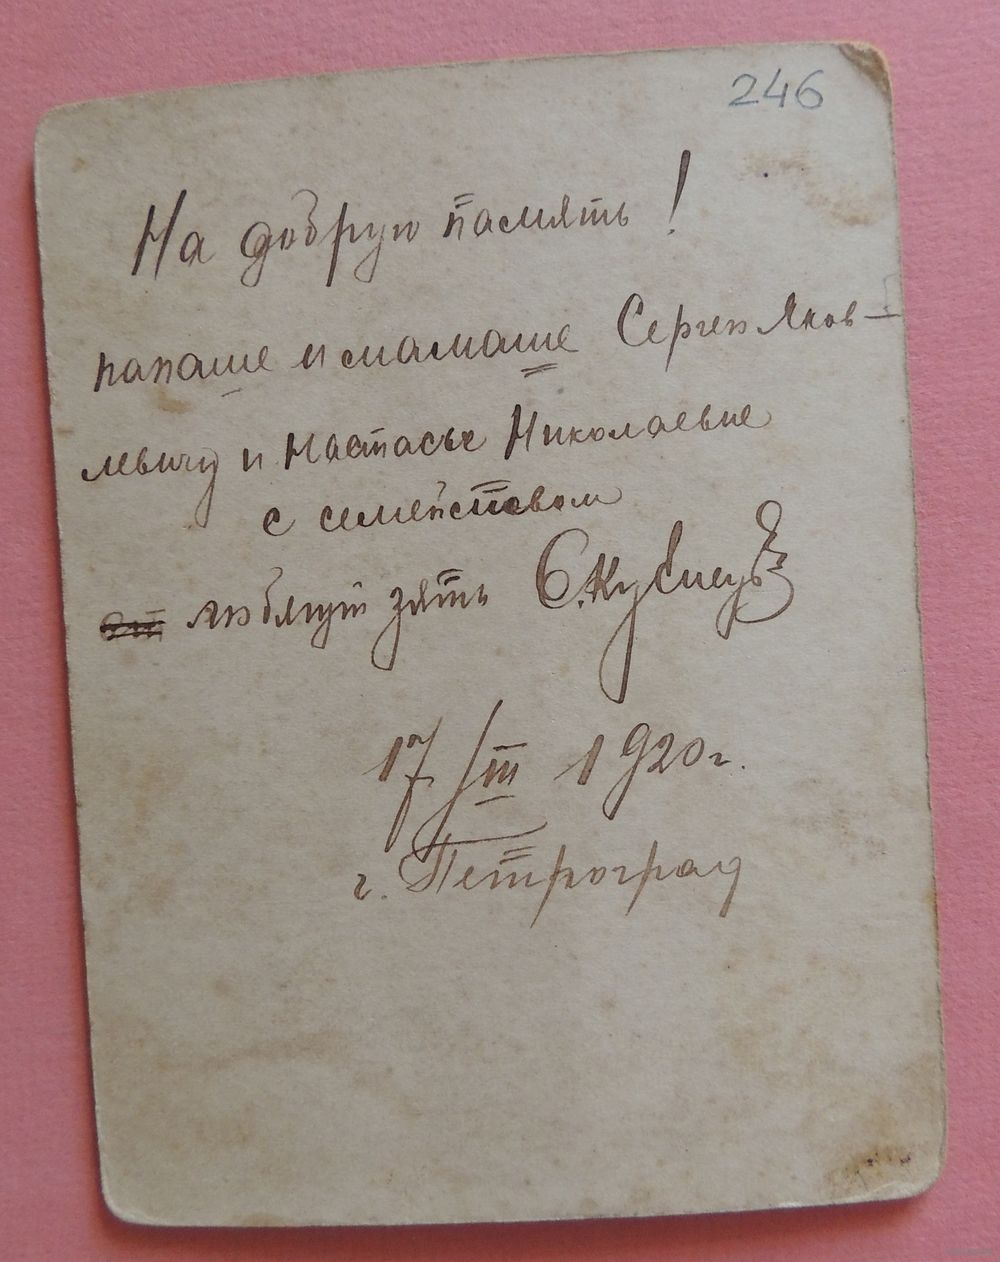 246
На добрую память!
папаше и мамаше Сергею Яков-
левичу и Настасье Николаевне
с семейством
любящий зять
17/III 1920 г.
г. Петроград